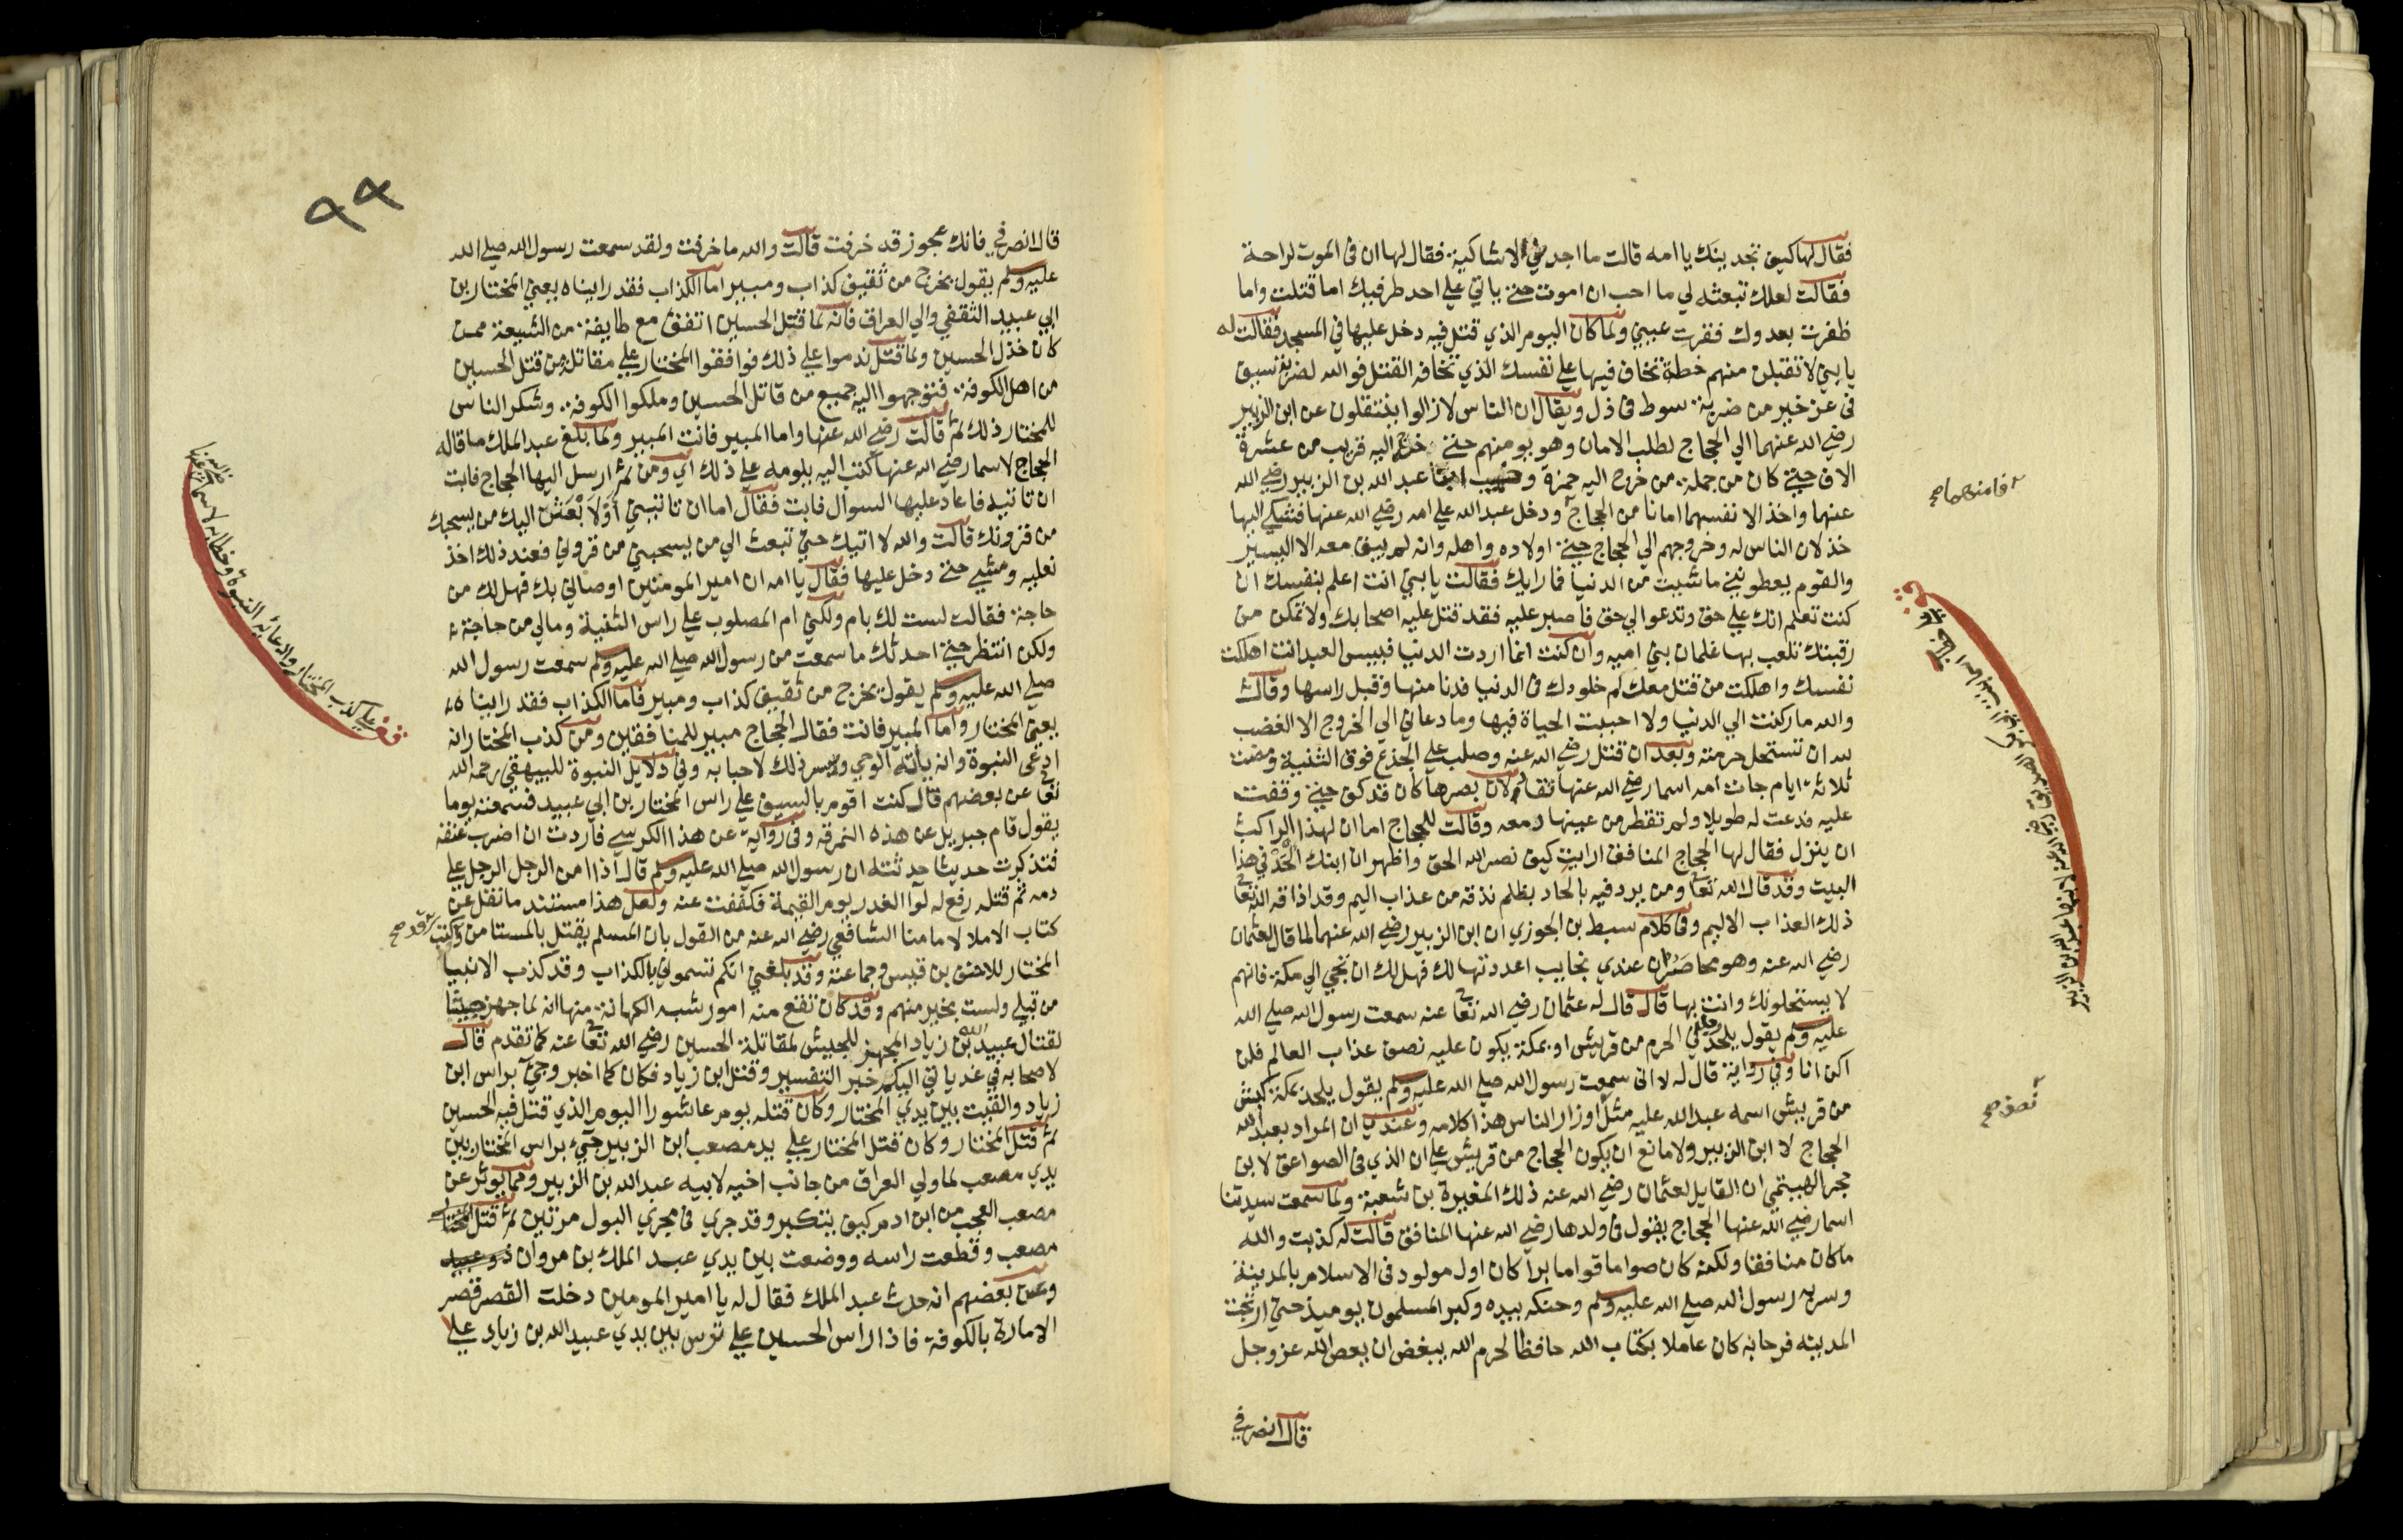 فقال لها كيف تجدينك يا امه قالت ما اجدني الا شاكية فقال لها ان في الموت لراحة
فقالت لعلك تبغيه لي ما احب ان اموت حتى ياتي علي احد طرفيك اما قتلت واما
ظفرت بعدوك فقرت عيني ولما كان اليوم الذي قتل فيه دخل عليها في المسجد فقالت له
يا بني لا تقبلن منهم خطة تخاف فيها على نفسك الذي تخافه القتل فوالله لضربة سيف
في عز خير من ضربة سوط في ذل ويقال ان الناس لا زالوا ينتقلون عن ابن الزبير
رضي الله عنهما الي الحجاج لطلب الامان وهو يومنهم حتى خرج اليه قريب من عشرة
الاف حتى كان من جملة من خرج اليه حمزة وخبيب ابنا عبد الله بن الزبير رضي الله
عنهما واخذا لانفسهما امانا من الحجاج ودخل عبد الله علي امه رضي الله عنها فشكي اليها
خذلان الناس له وخروجهم الي الحجاج حتى اولاده واهله وانه لم يبق معه الا اليسير
والقوم يعطونني ما شيت من الدنيا فما رايك فقالت يا بني انت اعلم بنفسك ان
كنت تعلم انك على حق وتدعو الي حق فاصبر عليه فقد قتل عليه اصحابك ولا تمكن من
رقبتك تلعب بها غلمان بني اميه وان كنت انما اردت الدنيا فبيس العبد انت اهلكت
نفسك واهلكت من قتل معك كم خلودك في الدنيا فدنا منها وقبل راسها وقال
والله ما ركنت الي الدنيا ولا احببت الحياة فيها وما دعاني الي الخروج الا الغضب
لله ان تستحل حرمته وبعد ان قتل رضي الله عنه وصلب علي الجذع فوق الثنية ومضت
ثلاثة ايام جات امه اسما رضي الله عنها تقاد لان بصرها كان قد كف حتى وقفت
عليه فدعت له طويلا ولم تقطر من عينها دمعة وقالت للحجاج اما ان لهذا الراكب
ان ينزل فقال لها الحجاج المنافق ارايت كيف نصر الله الحق واظهره ان ابنك الحد في هذا
البيت وقد قال الله تعا ومن يرد فيه بالحاد بظلم نذقه من عذاب اليم وقد اذاقه الله تعا
ذلك العذاب الاليم وفي كلام سبط بن الجوزي ان ابن الزبير رضي الله عنهما لما قال لعثمان
رضي الله عنه وهو محاصر ان عندي نجايب اعددتها لك فهل لك ان تجي الي مكة فانهم
لا يستحلونك وانت بها قال قال له عثمان رضي الله تعا عنه سمعت رسول الله صلي الله
عليه وسلم يقول يلحد رجل في الحرم من قريش او بمكة يكون عليه نصف عذاب العالم فلن
اكن انا وفي رواية قال له لا اني سمعت رسول الله صلي الله عليه وسلم يقول يلحد بمكة كبش
من قريش اسمه عبد الله عليه مثل اوزار الناس هذا كلامه وعندي ان المراد بعبد الله
الحجاج لا ابن الزبير ولا مانع ان يكون الحجاج من قريش علي ان الذي في الصواعق لابن
حجر الهيتمي ان القايل لعثمان رضي الله عنه ذلك المغيرة بن شعبة ولما سمعت سيدتنا
اسما رضي الله عنها الحجاج يقول في ولدها رضي الله عنها المنافق قالت له كذبت والله
ما كان منافقا ولكنه كان صواما قواما برا كان اول مولود في الاسلام بالمدينة
وسر به رسول الله صلي الله عليه وسلم وحنكه بيده وكبر المسلمون يوميذ حتى ارتجت
المدينه فرحا به كان عاملا بكتاب الله حافظا لحرم الله يبغض ان يعصى الله عز وجل
قال انصرفي
فامنهما صح
نصف صح
٩٩
قال انصرفي فانك عجوز قد خرفت قالت والله ما خرفت ولقد سمعت رسول الله صلي الله
عليه وسلم يقول يخرج من ثقيف كذاب ومبير اما الكذاب فقد رايناه يعني المختار بن
ابي عبيد الثقفي والي العراق فانه لما قتل الحسين اتفق مع طايفة من الشيعة ممن
كان خذل الحسين ولما قتل ندموا علي ذلك فوافقوا المختار علي مقاتلة من قتل الحسين
من اهل الكوفة فتوجهوا اليه جميع من قاتل الحسين وملكوا الكوفة وشكر الناس
للمختار ذلك ثم قالت رضي الله عنها واما المبير فانت المبير ولما بلغ عبد الملك ما قاله
الحجاج لاسما رضي الله عنها كتب اليه يلومه علي ذلك اي ومن ثم ارسل اليها الحجاج فابت
ان تاتيه فاعاد عليها السوال فابت فقال اما ان تاتيني اولا بعثن اليك من يسحبك
من قرونك قالت والله لا اتيك حتى تبعث الي من يسحبني من قروني فعند ذلك اخذ
نعليه ومشي حتى دخل عليها فقال يا امه ان امير المومنين اوصاني بك فهل لك من
حاجة فقالت لست لك بام ولكني ام المصلوب علي راس الثنية ومالي من حاجة
ولكن انتظر حتى احدثك ما سمعت من رسول الله صلي الله عليه وسلم سمعت رسول الله
صلي الله عليه وسلم يقول يخرج من ثقيف كذاب ومبير فاما الكذاب فقد رايناه
يعني المختار واما المبير فانت فقال الحجاج مبير للمنافقين ومن كذب المختار انه
ادعى النبوة وانه ياتيه الوحي ويسر ذلك لاحبابه وفي دلايل النبوة للبيهقي رحمه الله
تعا عن بعضهم قال كنت اقوم بالسيف علي راس المختار بن ابي عبيد فسمعته يوما
يقول قام جبريل عن هذه النمرقه وفي رواية عن هذا الكرسي فاردت ان اضرب عنقه
فتذكرت حديثا حدثته ان رسول الله صلي الله عليه وسلم قال اذا امن الرجل الرجل علي
دمه ثم قتله رفع له لوا الغدر يوم القيمة فكففت عنه ولعل هذا مستند ما نقل عن
كتاب الاملا لامامنا الشافعي رضي الله عنه من القول بان المسلم يقتل بالمستامن وكتب
المختار للاحنف بن قيس وجماعته وقد بلغني انكم تسموني بالكذاب وقد كذب الانبيا
من قبلي ولست بخير منهم وقد كان تقع منه امور شبه الكهانة منها انه لما جهز جيشا
لقتال عبيد الله بن زياد المجهز للجيش لمقاتلة الحسين رضي الله تعا عنه كما تقدم قال
لاصحابه في غد ياتي اليكم خبر النفسير وقتل ابن زياد فكان كما اخبر وجي براس ابن
زياد والقيت بين يدي المختار وكان قتله يوم عاشورا اليوم الذي قتل فيه الحسين
ثم قتل المختار وكان قتل المختار علي يد مصعب ابن الزبير جيء براس المختار بين
يدي مصعب لما ولي العراق من جانب اخيه لابيه عبد الله بن الزبير ومما يوثر عن
مصعب العجب من ابن ادم كيف يتكبر وقد جري في مجري البول مرتين ثم قتل
مصعب وقطعت راسه ووضعت بين يدي عبد الملك بن مروان
وعن بعضهم انه حدث عبد الملك فقال له يا امير المومنين دخلت القصر قصر
الامارة بالكوفة فاذا راس الحسين علي ترس بين يدي عبيد الله بن زياد علي
قد صح
قف علي كذب المختار وادعائه النبوة